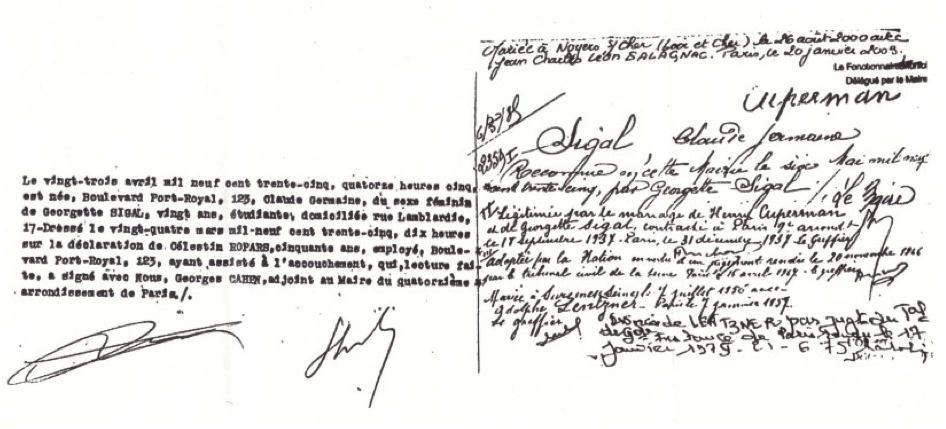 Le vingt-trois avril mil neuf cent trente-cinq, quatorze heures cinq
est née, Boulevard Port-Royal, 123, Claude Germaine, du sexe féminin
de Georgette SIGAL, vingt ans, étudiante; domiciliée rue Lamblardie,
17-Dressé le vingt-quatre mars mil-neuf cent trente-cinq, dix heures
sur la déclaration de Célestin ROPARS,cinquante ans, employé, Boule-
vard Port-Royal, 123, ayant assisté à l'accouchement, qui,lecture fai-
te, a signé avec Nous, Georges CAHEN,adjoint au Maire du quatorzième
arrondissement de Paris,/.
Mariée à Noyers s/Cher (Loir et Cher) le 26 août 2000 avec
Jean Charles Léon BALAGNAC. Paris, le 20 janvier 2009.
Le Fonctionnaire
Délégué par le Maire
Cuperman
Sigal Claude Germaine
Reconnue en cette Mairie le six Mai mil neuf
cent trente cinq, par Georgette Sigal
Légitimée par le mariage de Henry Cuperman
et de Georgette Sigal, contracté à Paris
le 18 septembre 1937. Paris, le 31 décembre 1937. Le Greffier
adoptée par la Nation jugement rendu le 20 novembre 1946
par le tribunal civil de la Seine Paris le 16 avril 1947.
Mariée à Suresnes (Seine) le 7 juillet 1956 avec
Adolphe Lentzner. Paris le 7 janvier 1957.
Le greffier
Divorcée de LENTZNER par jugt du
Instance de Paris rendu le 17
janvier 1975